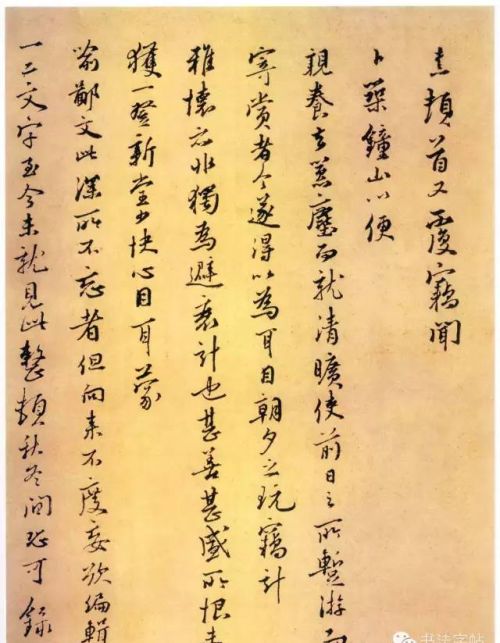 熹頓首又覆竊聞
卜築鐘山以便
親養去囂塵而就清曠使前日之所暫游而
寄賞者今遂得以為耳目朝夕之玩竊計
雅懷亦非獨為避衰計也甚善甚盛所恨未
獲一登新堂少快心目耳蒙
喻鄙文此深所不忘者但向來不度妄欲編輯
一二文字至今未就見此整頓秋冬間恐可錄
书法字帖